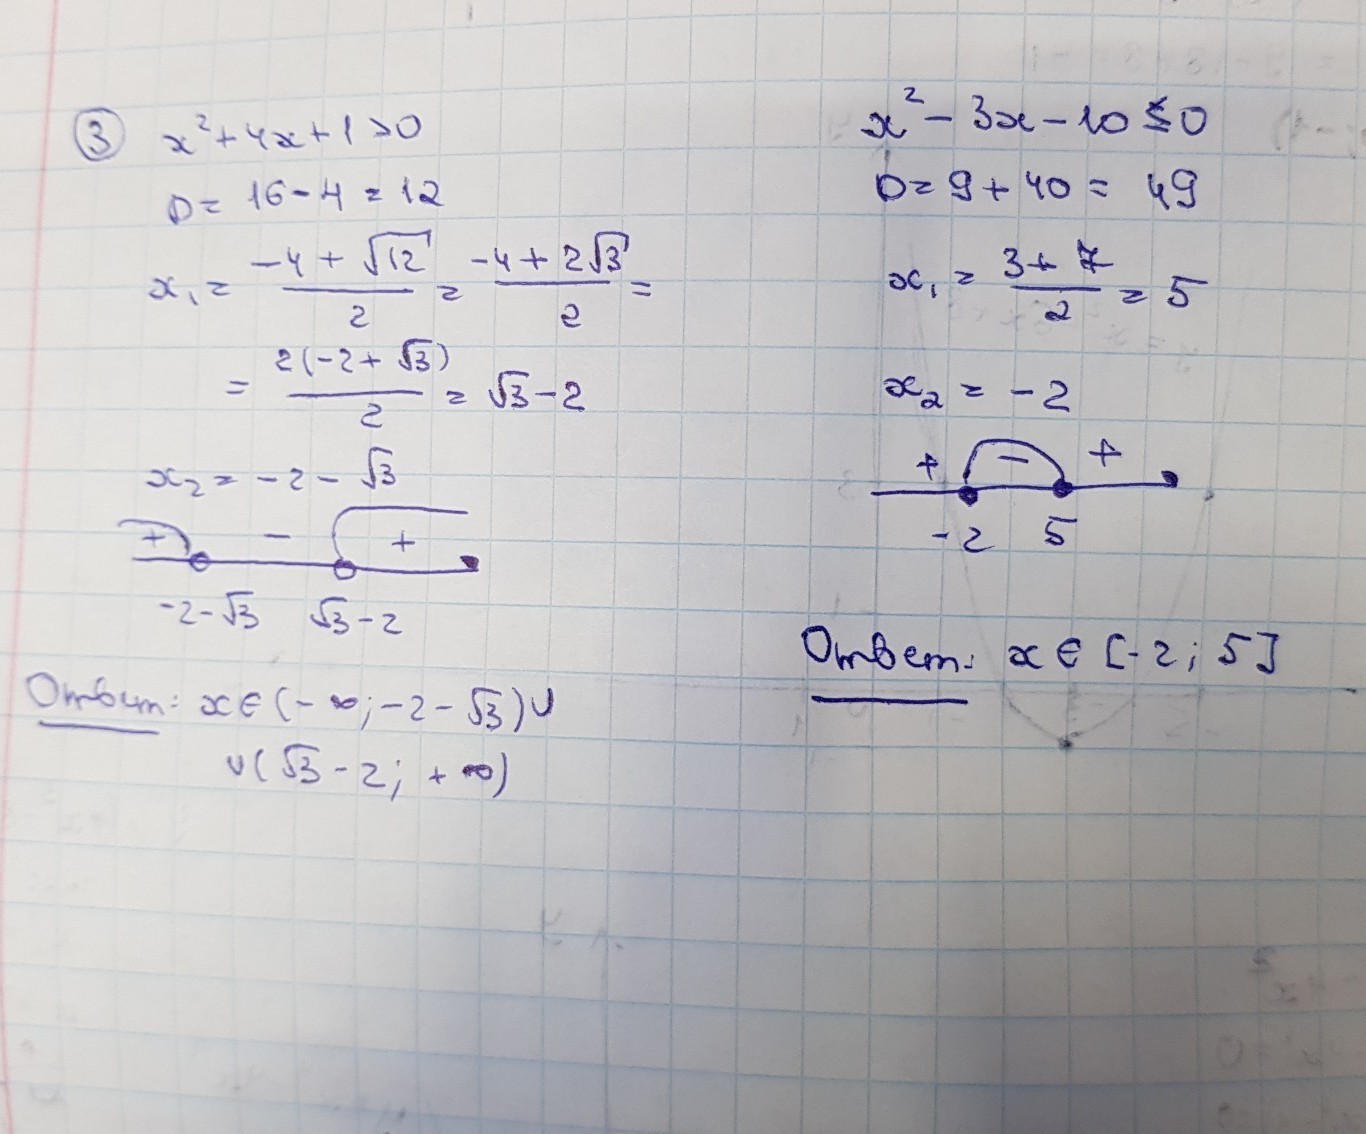 ③ x² + 4x + 1 > 0
D = 16 - 4 = 12
x₁ = (-4 + √12)/2 = (-4 + 2√3)/2 =
= 2(-2 + √3)/2 = √3 - 2
x₂ = -2 - √3
+ - +
-2-√3 √3-2
Ответ: x ∈ (-∞; -2 - √3) ∪
∪ (√3 - 2; +∞)
x² - 3x - 10 ≤ 0
D = 9 + 40 = 49
x₁ = (3 + 7)/2 = 5
x₂ = -2
+ - +
-2 5
Ответ: x ∈ [-2; 5]